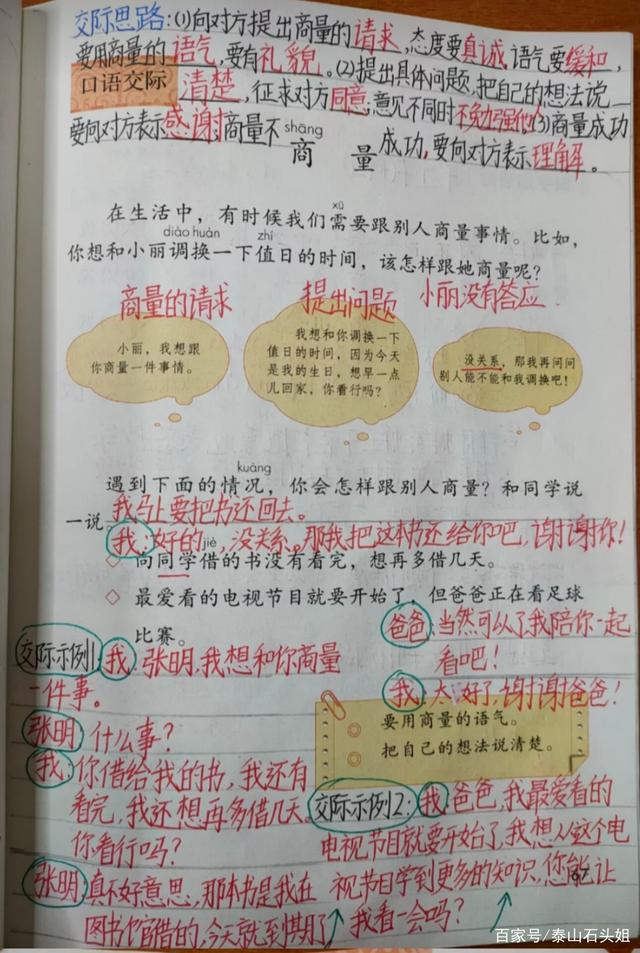 交际思路:(1)向对方提出商量的请求,态度要真诚,语气要缓和,
要用商量的语气,要有礼貌。(2)提出具体问题,把自己的想法说
口语交际
清楚,征求对方同意;意见不同时不勉强他人(3)商量成功
要向对方表示感谢;商量不成功,要向对方表示理解。
shāng
商量
xū
在生活中,有时候我们需要跟别人商量事情。比如,
diào huàn zhí
你想和小丽调换一下值日的时间,该怎样跟她商量呢?
商量的请求 提出问题 小丽没有答应
小丽,我想跟
你商量一件事情。
我想和你调换一下
值日的时间,因为今天
是我的生日,想早一点
儿回家,你看行吗?
没关系,那我再问问
别人能不能和我调换吧!
kuàng
遇到下面的情况,你会怎样跟别人商量?和同学说
一说。
我马上要把书还回去。
我:好的,没关系。那我把这本书还给你吧,谢谢你!
jiè
◇ 向同学借的书没有看完,想再多借几天。
◇ 最爱看的电视节目就要开始了,但爸爸正在看足球
比赛。
爸爸:当然可以了我陪你一起
看吧!
我:太好了,谢谢爸爸!
要用商量的语气。
把自己的想法说清楚。
交际示例1:我:张明,我想和你商量
一件事。
张明:什么事?
我:你借给我的书,我还有
看完,我还想再多借几天。
你看行吗?
张明:真不好意思,那本书是我在
图书官借的,今天就到期了
交际示例2:我:爸爸,我最爱看的
电视节目就要开始了,我想从这个电
视节目学到更多的知识,您能让
我看一会吗?
67
百家号/泰山石头姐